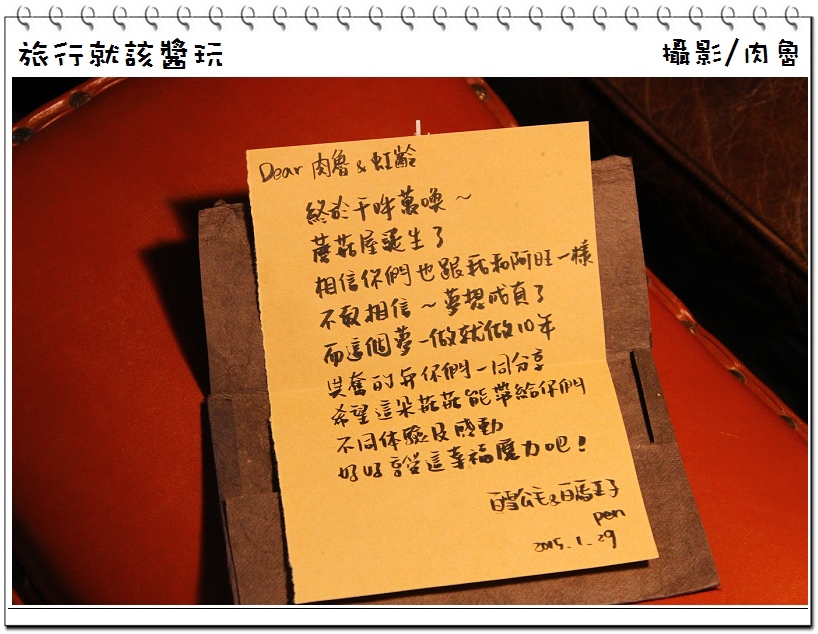 旅行就該醬玩
攝影/肉魯
Dear 肉魯 & 虹齡
終於千呼萬喚～
蘑菇屋誕生了
相信你們也跟我和阿旺一樣
不敢相信～夢想成真了
而這個夢一做就做10年
興奮的與你們一同分享
希望這朵菇菇能帶給你們
不同体驗及感動
好好享受這幸福魔力吧！
白雪公主&白馬王子
pen
2015.1.29